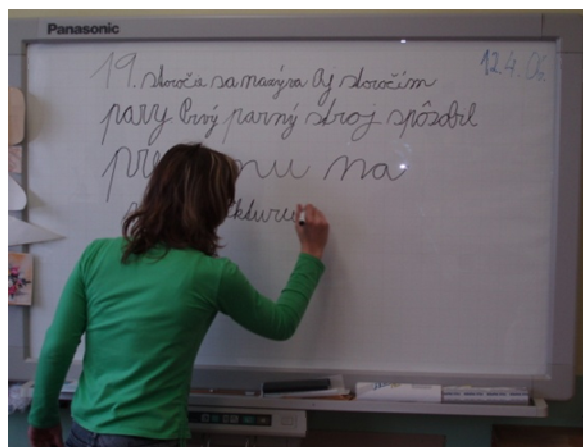 Panasonic
12.4.06.
19. storočie sa nazýva aj storočím
pary Prvý parný stroj spôsobil
na